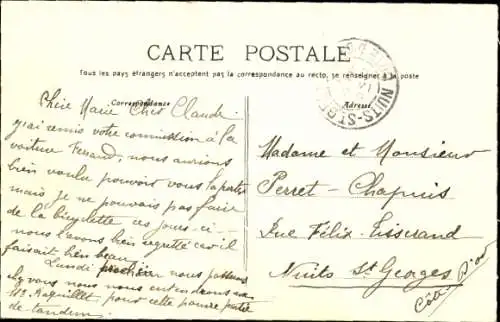 CARTE POSTALE
Tous les pays étrangers n'acceptent pas la correspondance au recto, se renseigner à la poste
Correspondance
Adresse
NUITS-ST-GE
Chère Marie Cher Claude
J'ai remis votre commission à la
voiture Ferrand, nous aurions
bien voulu pouvoir vous la porter
mais je ne pouvais pas faire
de la bicyclette ces jours-ci
nous l'avons bien regretté car il
faisait bien beau.
Lundi prochain nous
chez vous nous nous entendrons
Mr pour cette partie
de tandem.
Madame et Monsieur
Perret-Chapuis
Rue Félix-Tisserand
Nuits St Georges
Côte d'or